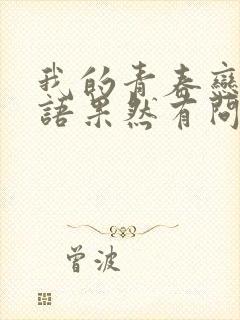 我的青春戀
語果然有問
曾波